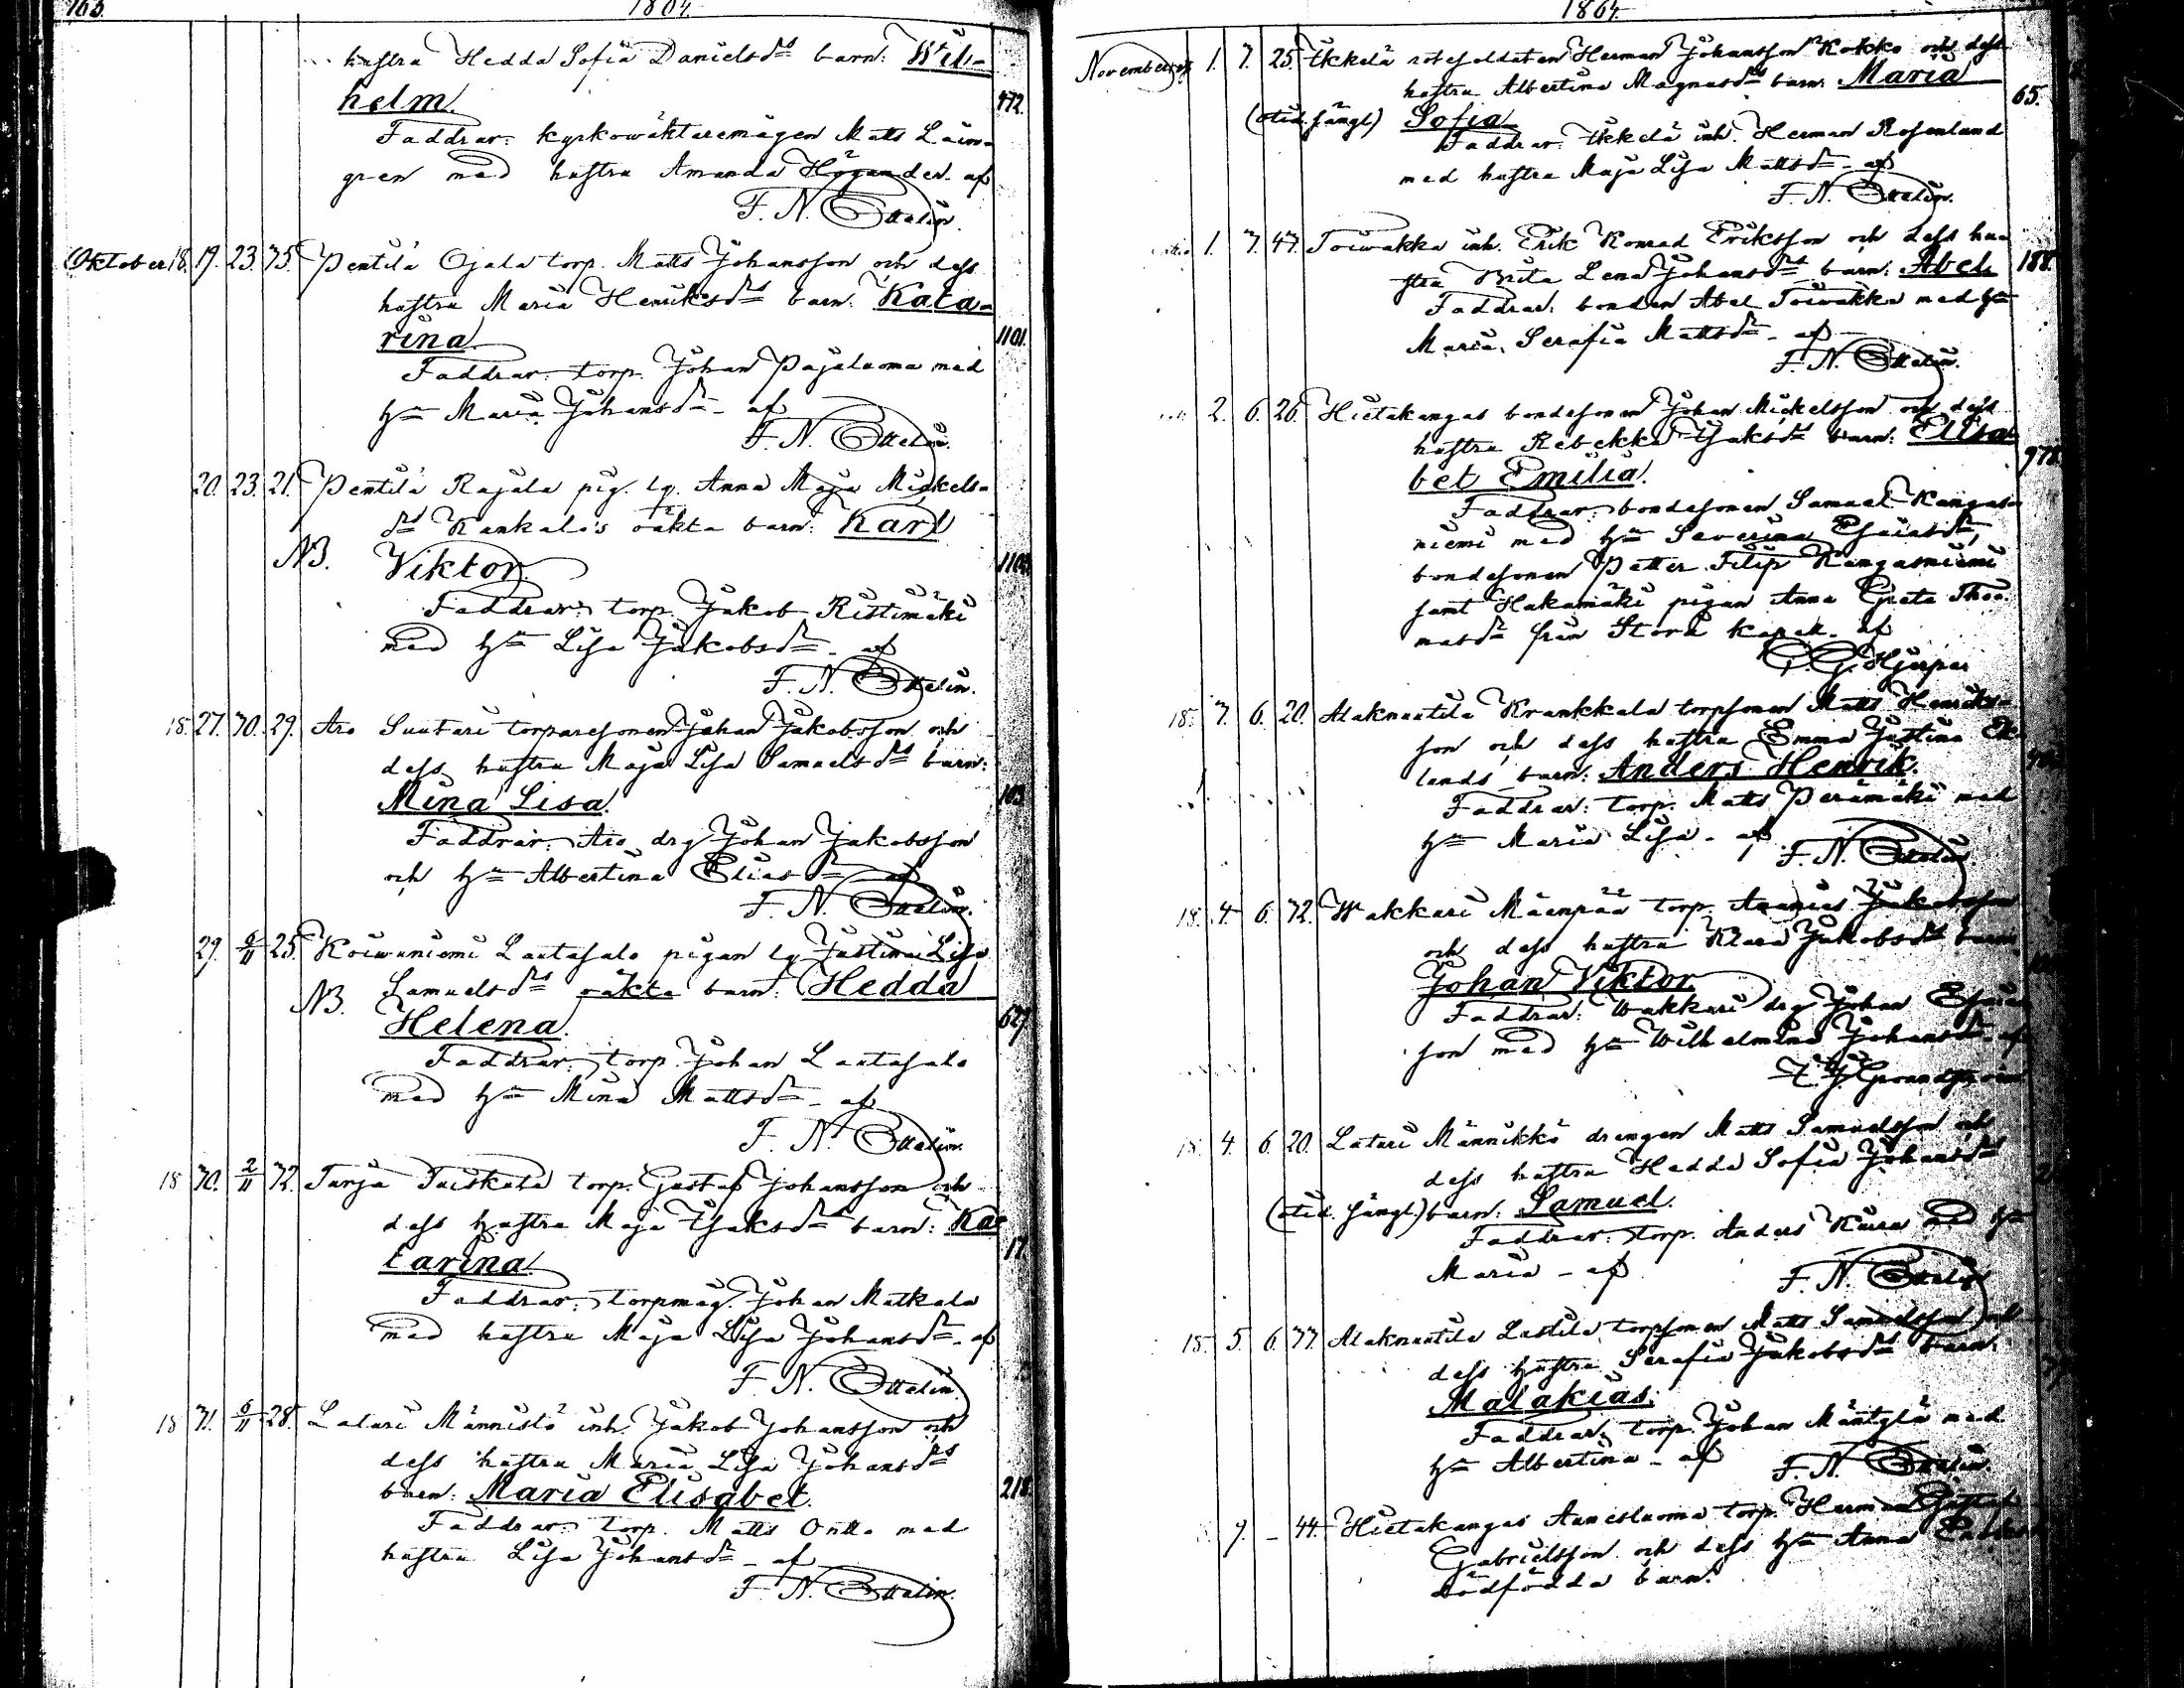 163.
1864.
hustru Hedda Sofia Danielsds barn: Wil-
helm. 472.
Faddrar: kyrkowäktaremågen Matts
gren med hustru Amanda af
F. N.
Oktober 18. 19. 23. 75. Pentilä Ojala torp. Matts Johansson och dess
hustru Maria Henriksds barn: Kata-
rina 1101.
Faddrar: torp. Johan Pajuluoma med
hu Maria Johansdr - af
F. N.
20. 23. 21. Pentilä Rajala pig. lg. Anna Maja Mickels-
ds oäkta barn: Karl
NB. Viktor
Faddrar: torp. Jakob Ristimäki
med hu Lisa Jakobsdr - af
F. N.
18. 27. 30. 29. Aro Suutari torparesonen Johan Jakobsson och
dess hustru Maja Lisa Samuelsds barn:
Mina Lisa. 103.
Faddrar: Aro drg Johan Jakobsson
och hu Albertina Eliasdr - af
F. N.
29. 6/11 25. Koiwuniemi Lautasalo pigan lg Justina Lisa
NB. Samuelsds oäkta barn: Hedda
Helena. 627.
Faddrar: torp. Johan Lautasalo
med hu Mina Mattsdr - af
F. N.
18 30. 2/11 32. Turja Tuiskula torp. Gustaf Johansson och
dess hustru Maja Isaksds barn: Ka-
tarina. 17.
Faddrar: torpmåg. Johan Matkala
med hustru Maja Lisa Johansdr - af
F. N.
18 31. 6/11 28. Laturi Männistö inh. Jakob Johansson och
dess hustru Maria Lisa Johansds
barn: Maria Elisabet. 218.
Faddrar: torp. Matts Ontto med
hustru Lisa Johansdr - af
F. N.
1864.
November 1. 7. 25. Ikkelä rotesoldaten Herman Johansson Kokko och dess
hustru Albertina Magnusds barn: Maria
(otid. sängl) Sofia 65.
Faddrar: Ikkelä inh. Herman Rosenlund
med hustru Maja Lisa Mattsdr - af
F. N.
1. 7. 47. Toiwakka inh. Erik Konrad Eriksson och dess hu-
stru Brita Lena Johansds barn: Abel. 188.
Faddrar: bonden Abel Toiwakka med hu
Maria Serafia Mattsdr - af
F. N.
2. 6. 26. Hietakangas bondesonen Johan Mickelsson och dess
hustru Rebekka Isaksds barn: Elisa-
bet Emilia.
Faddrar: bondesonen Samuel Kangas-
niemi med hu Severina Esaiasdr,
bondesonen Petter Filip Kangasniemi
samt Hakamäki pigan Anna Greta Tho-
masdr från Storå kapell - af
Hjerpe.
18. 3. 6. 20. Alaknuutila Krankkala torpsonen Matts Henriks-
son och dess hustru Emma Justina Ek-
lunds barn: Anders Henrik.
Faddrar: torp. Matts Perämäki med
hu Maria Lisa - af
F. N.
18. 4. 6. 32. Wakkuri Mäenpää torp. Ananias Jakobsson
och dess hustru Klara Jakobsds barn
Johan Viktor
Faddrar: Wakkuri drg Johan Esaias-
son med hu Wilhelmina Johansdr - af
18 4. 6. 20. Laturi Männikkö drengen Matts Samuelsson och
dess hustru Hedda Sofia Johansds
(otid. sängl.) barn: Samuel.
Faddrar: torp. Anders med hu
Maria - af
F. N.
18. 5. 6. 37. Alaknuutila Lastila torpsonen Matts Samuelsson och
dess hustru Serafia Jakobsds barn:
Malakias.
Faddrar: torp. Johan Mäntylä med
hu Albertina - af
F. N.
9. - 44. Hietakangas torp. Herman Gustaf
Gabrielsson och dess hu Anna
dödfödda barn.